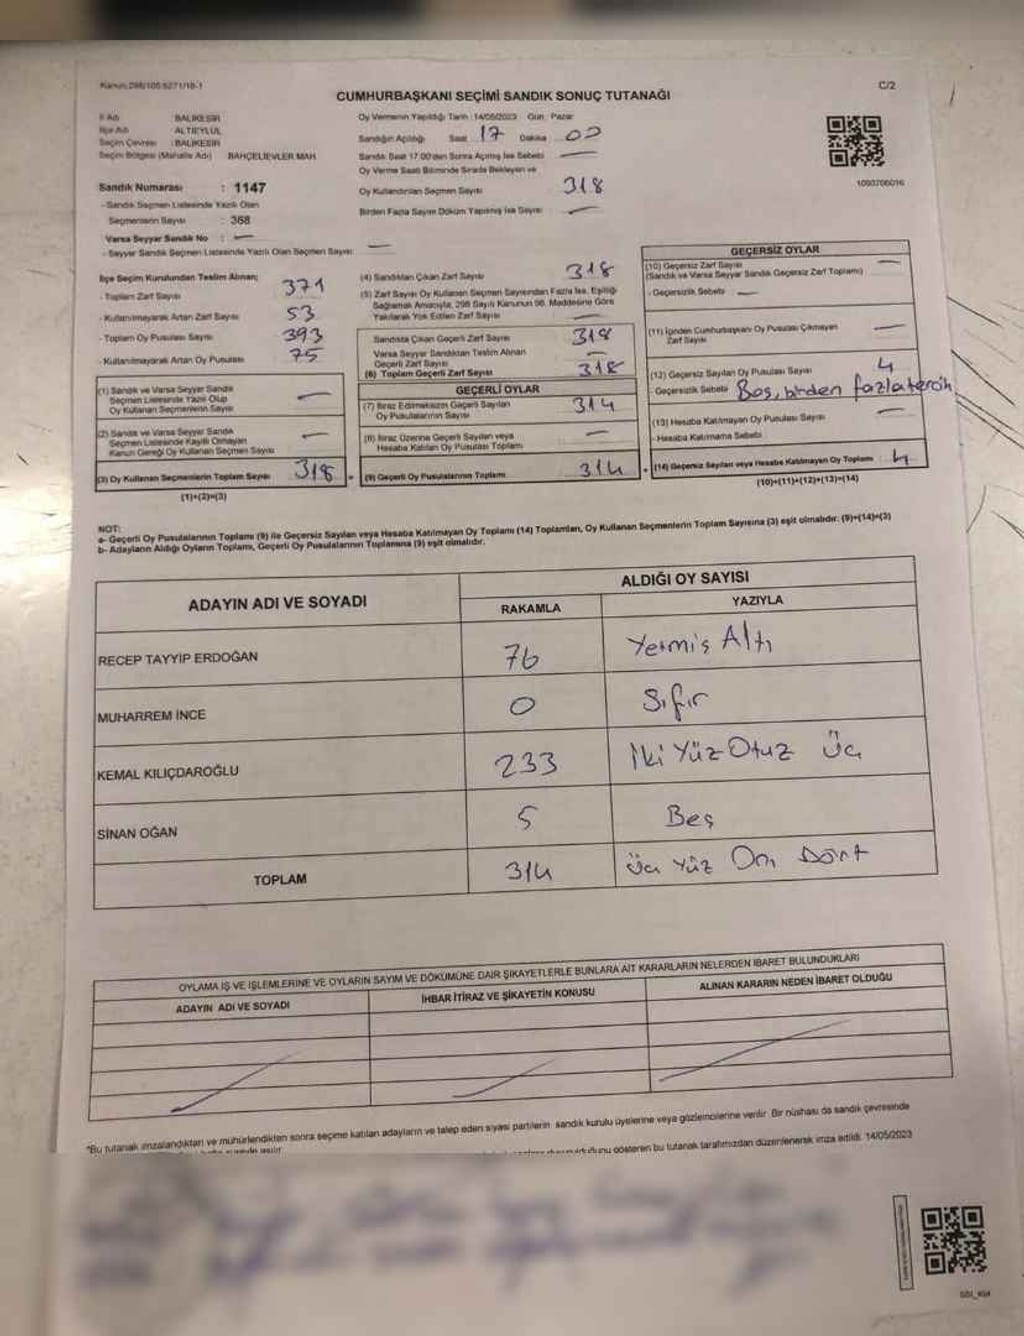 Kanun:298/105:6271/18-1
C/2
CUMHURBAŞKANI SEÇİMİ SANDIK SONUÇ TUTANAĞI
İl Adı : BALIKESİR
İlçe Adı : ALTIEYLÜL
Seçim Çevresi : BALIKESİR
Seçim Bölgesi (Mahalle Adı) : BAHÇELİEVLER MAH.
Sandık Numarası : 1147
- Sandık Seçmen Listesinde Yazılı Olan
Seçmenlerin Sayısı : 368
Varsa Seyyar Sandık No : —
- Seyyar Sandık Seçmen Listesinde Yazılı Olan Seçmen Sayısı —
Oy Vermenin Yapıldığı Tarih :14/05/2023 Gün : Pazar
Sandığın Açıldığı Saat 17 Dakika : 00
Sandık Saat 17:00'den Sonra Açılmış İse Sebebi —
Oy Verme Saati Bitiminde Sırada Bekleyen ve
Oy Kullandırılan Seçmen Sayısı 318
Birden Fazla Sayım Döküm Yapılmış İse Sayısı —
1093706016
İlçe Seçim Kurulundan Teslim Alınan;
- Toplam Zarf Sayısı 371
- Kullanılmayarak Artan Zarf Sayısı 53
- Toplam Oy Pusulası Sayısı 393
- Kullanılmayarak Artan Oy Pusulası 75
(1) Sandık ve Varsa Seyyar Sandık
Seçmen Listesinde Yazılı Olup
Oy Kullanan Seçmenlerin Sayısı —
(2) Sandık ve Varsa Seyyar Sandık
Seçmen Listesinde Kayıtlı Olmayan
Kanun Gereği Oy Kullanan Seçmen Sayısı —
(3) Oy Kullanan Seçmenlerin Toplam Sayısı 318
(1)+(2)=(3)
(4) Sandıktan Çıkan Zarf Sayısı 318
(5) Zarf Sayısı Oy Kullanan Seçmen Sayısından Fazla İse, Eşitliği
Sağlamak Amacıyla, 298 Sayılı Kanunun 98. Maddesine Göre
Yakılarak Yok Edilen Zarf Sayısı —
Sandıkta Çıkan Geçerli Zarf Sayısı 318
Varsa Seyyar Sandıktan Teslim Alınan
Geçerli Zarf Sayısı —
(6) Toplam Geçerli Zarf Sayısı 318
GEÇERLİ OYLAR
(7) İtiraz Edilmeksizin Geçerli Sayılan
Oy Pusulalarının Sayısı 314
(8) İtiraz Üzerine Geçerli Sayılan veya
Hesaba Katılan Oy Pusulası Toplamı —
(9) Geçerli Oy Pusulalarının Toplamı 314
GEÇERSİZ OYLAR
(10) Geçersiz Zarf Sayısı —
(Sandık ve Varsa Seyyar Sandık Geçersiz Zarf Toplamı)
- Geçersizlik Sebebi —
(11) İçinden Cumhurbaşkanı Oy Pusulası Çıkmayan
Zarf Sayısı —
(12) Geçersiz Sayılan Oy Pusulası Sayısı 4
- Geçersizlik Sebebi Boş, birden fazla tercih
(13) Hesaba Katılmayan Oy Pusulası Sayısı —
- Hesaba Katılmama Sebebi
(14) Geçersiz Sayılan veya Hesaba Katılmayan Oy Toplamı 4
(10)+(11)+(12)+(13)=(14)
NOT:
a- Geçerli Oy Pusulalarının Toplamı (9) ile Geçersiz Sayılan veya Hesaba Katılmayan Oy Toplamı (14) Toplamları, Oy Kullanan Seçmenlerin Toplam Sayısına (3) eşit olmalıdır. (9)+(14)=(3)
b- Adayların Aldığı Oyların Toplamı, Geçerli Oy Pusulalarının Toplamına (9) eşit olmalıdır.
ADAYIN ADI VE SOYADI
ALDIĞI OY SAYISI
RAKAMLA YAZIYLA
RECEP TAYYİP ERDOĞAN 76 Yetmiş Altı
MUHARREM İNCE 0 Sıfır
KEMAL KILIÇDAROĞLU 233 İki Yüz Otuz Üç
SİNAN OĞAN 5 Beş
TOPLAM 314 Üç Yüz On Dört
OYLAMA İŞ VE İŞLEMLERİNE VE OYLARIN SAYIM VE DÖKÜMÜNE DAİR ŞİKAYETLERLE BUNLARA AİT KARARLARIN NELERDEN İBARET BULUNDUKLARI
ADAYIN ADI VE SOYADI İHBAR İTİRAZ VE ŞİKAYETİN KONUSU ALINAN KARARIN NEDEN İBARET OLDUĞU
*Bu tutanak imzalandıktan ve mühürlendikten sonra seçime katılan adayların ve talep eden siyasi partilerin sandık kurulu üyelerine veya gözlemcilerine verilir. Bir nüshası da sandık çevresinde
gösteren bu tutanak tarafımızdan düzenlenerek imza edildi. 14/05/2023